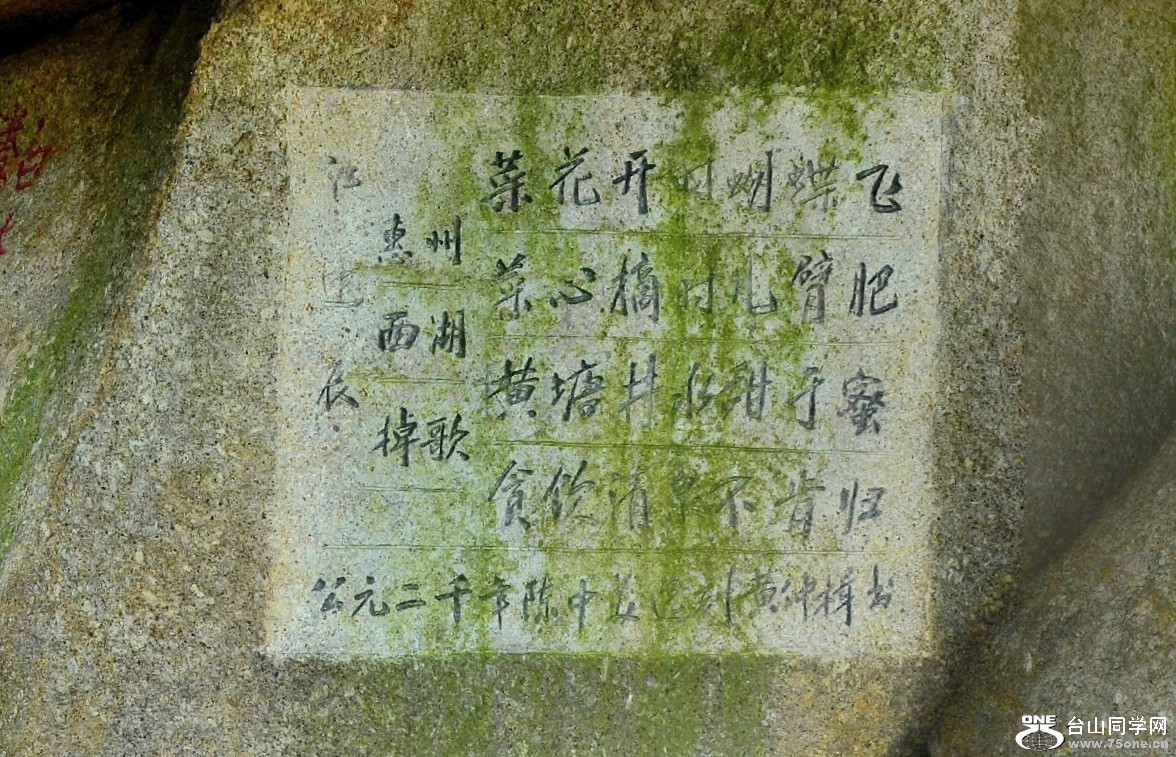 江逢辰
惠州
西湖
掉歌
菜花开时蝴蝶飞
菜心摘时儿臂肥
黄塘井水甜于蜜
贪饮清泉不肯归
公元二千年陈中美选刻黄仲楫书
ONE 台山同学网
www.75one.cn